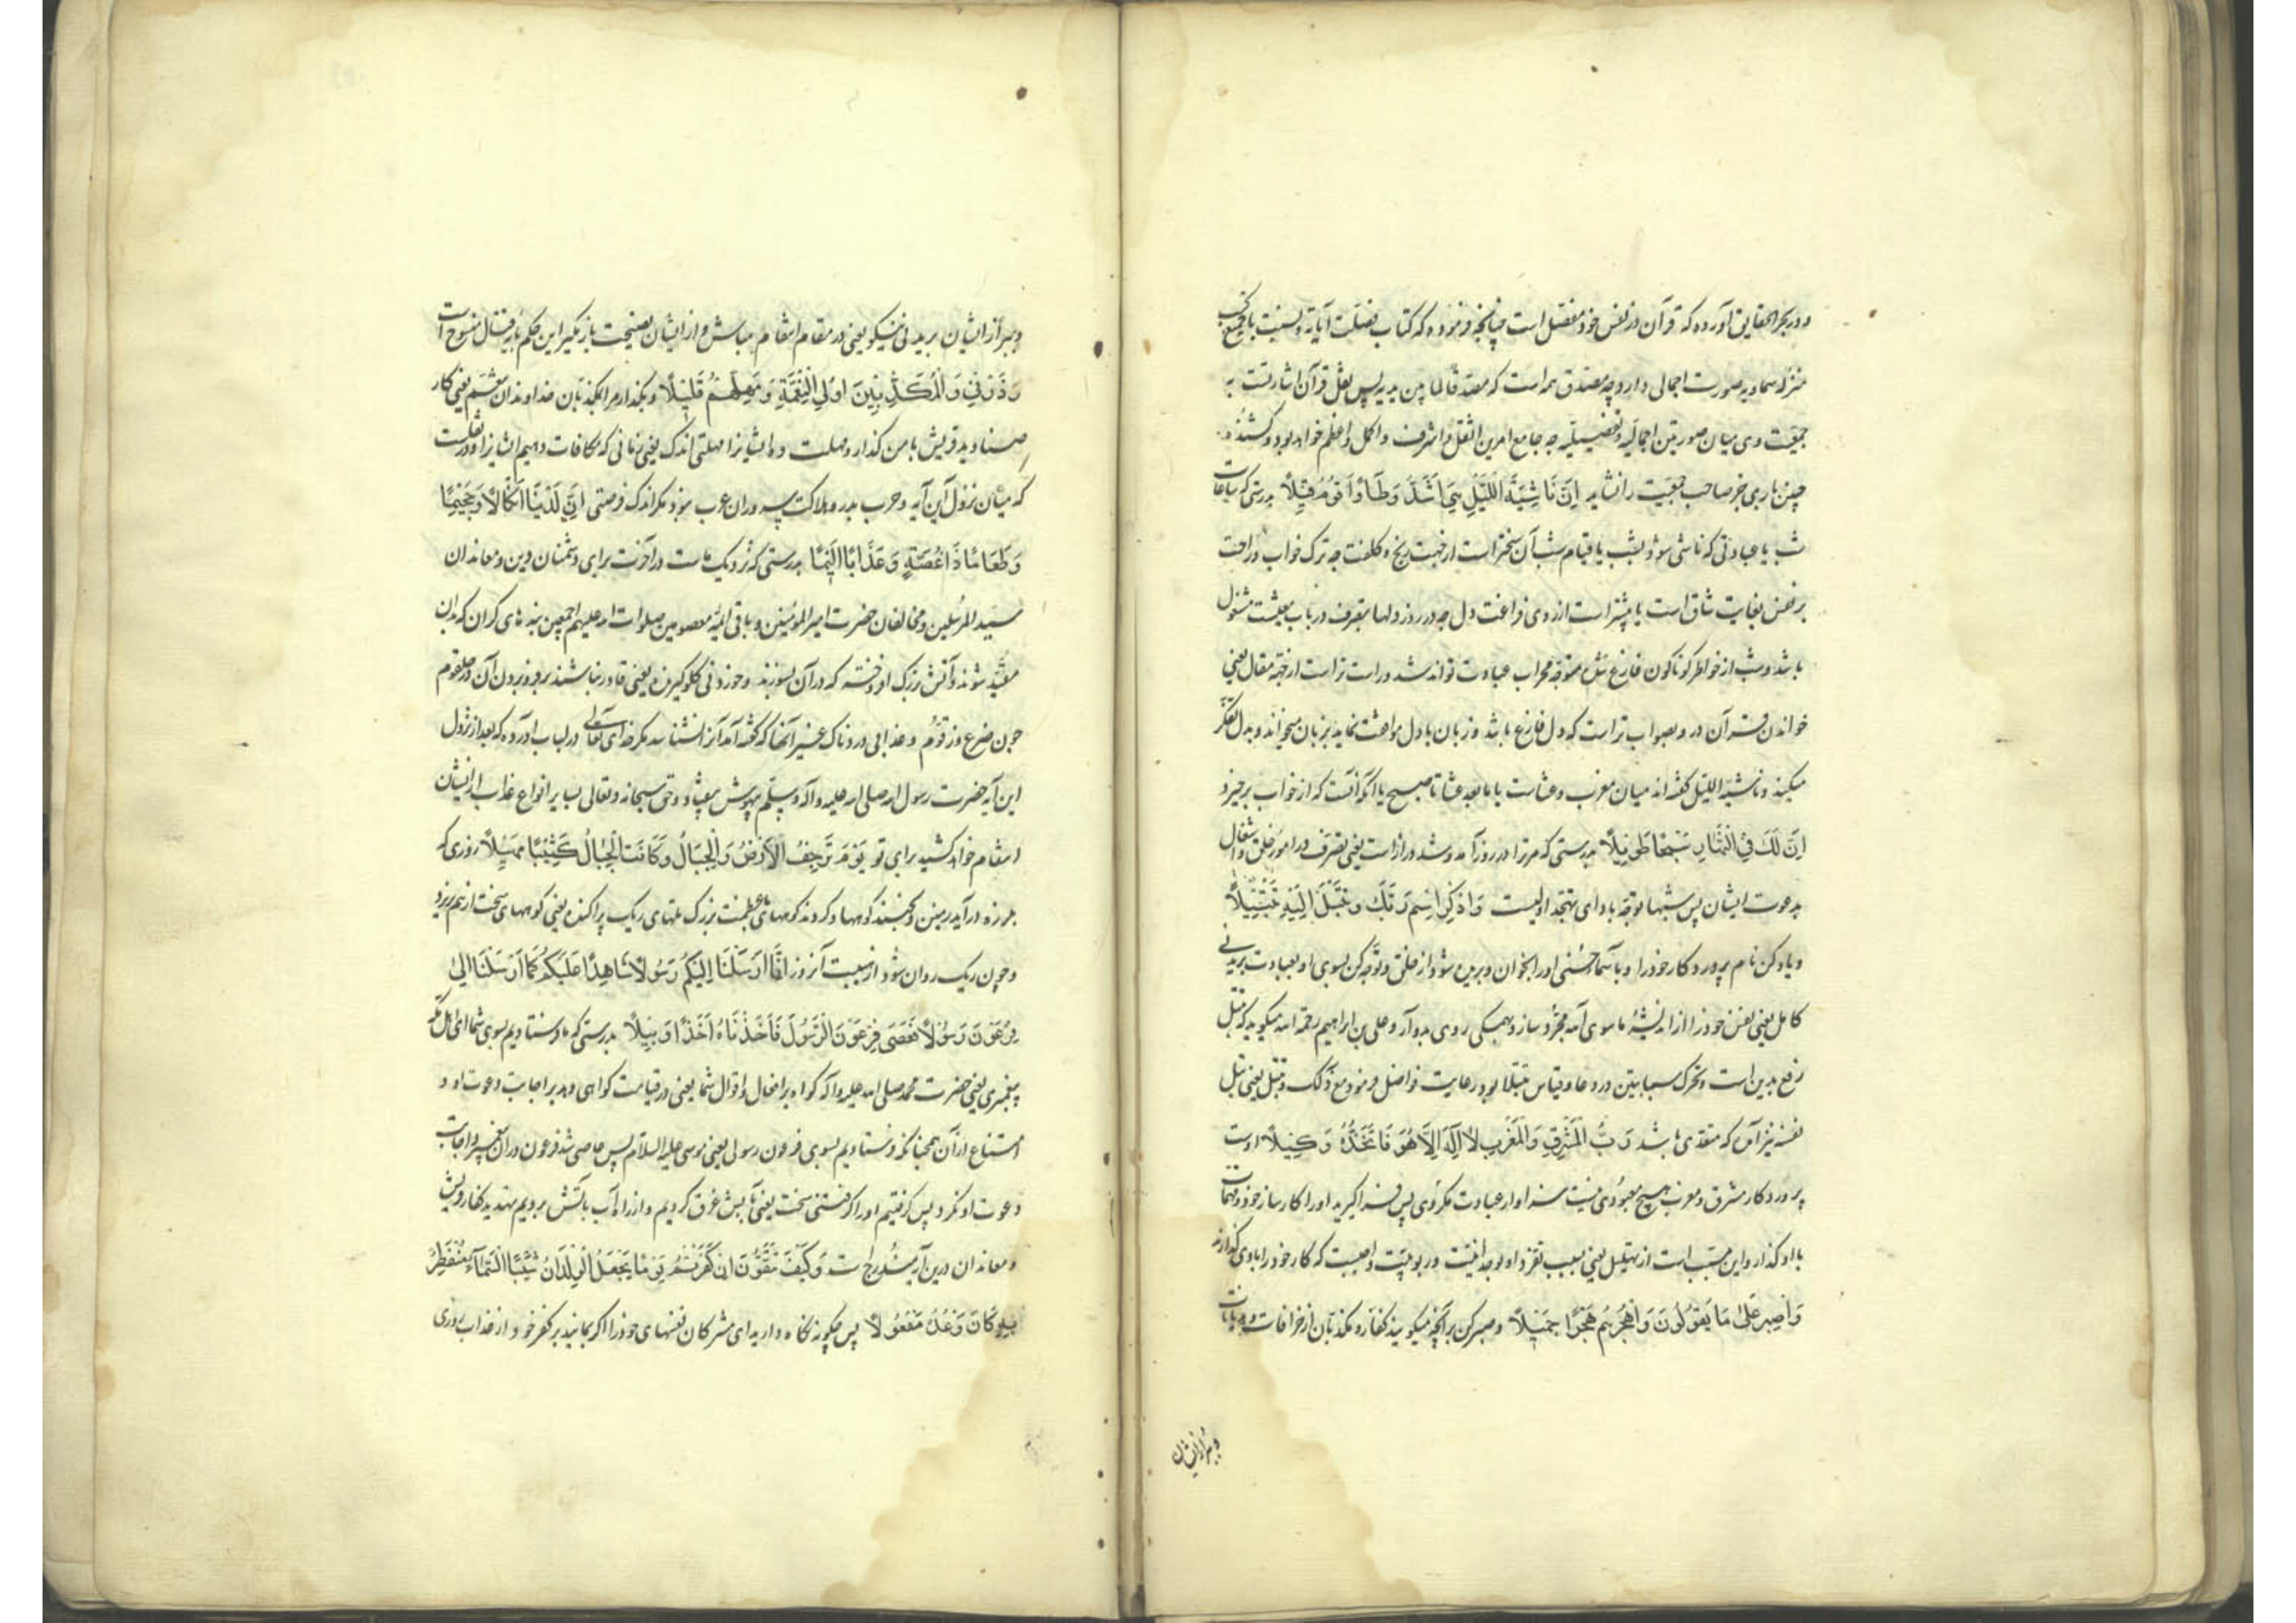 و در بحر الحقایق آورده که قرآن در نفس خود مفصل است چنانچه فرموده که کتاب فصلت آیاته و لیسنت با جمیع کتب
منزله سماویه صورت اجمالی دارد چه مصدق همه است که مصدقا لما بین یدیه پس ثقل قرآن اشارتست به
جمعیت وی میان صورتین اجمالیه و تفصیلیه چه جامع امرین اثقل و اشرف و اکمل و اعظم خواهد بود و کشنده
چنین باری جز صاحب جمعیت را نشاید اِنَّ نَاشِئَةَ اللَّیْلِ هِیَ اَشَدُّ وَطْأً وَاَقْوَمُ قِیْلًا بدرستی که ساعات
شب یا عبادتی که ناشی شود بشب یا قیام شب آن سختر است از جهت رنج و کلفت چه ترک خواب و راحت
بر نفس بغایت شاق است یا بیشتر است از روی فراغت دل چه در روز دلها بتصرف در باب معیشت مشغول
باشد و شب از خواطر گوناگون فارغ شده متوجه محراب عبادت تواند شد و راست تر است از جهة مقال یعنی
خواندن قرآن در و بصواب تر است که دل فارغ باشد و زبان با دل موافقت نماید بزبان میخواند و بدل تفکر
میکند و ناشئة اللیل گفته اند میان مغرب و عشاست یا ما بعد عشا تا صبح یا آنکه آنست که از خواب برخیزد
اِنَّ لَكَ فِی النَّهَارِ سَبْحًا طَوِیْلًا بدرستی که مر ترا در روز آمد و شد دراز است یعنی تصرف در امور خلق و اشغال
بدعوت ایشان پس شبها توجه بادای تهجد اولیست وَاذْكُرِ اسْمَ رَبِّكَ وَتَبَتَّلْ اِلَیْهِ تَبْتِیْلًا
و یاد کن نام پروردگار خود را و باسماء حسنی او را بخوان و بریده شو از خلق و توجه کن بسوی او بعبادت بریدنی
کامل یعنی نفس خود را از اندیشهٔ ما سوی الله مجرد ساز و بهمگی روی بدو آر و علی بن ابراهیم رحمة الله میگوید که تبتل
رفع یدین است و تحرک سبابتین در دعا و قیاس تبتلا بود رعایت فواصل فرمود مع ذلک و تبتل یعنی بتل
نفسه نیز آمده که متعدی باشد رَبُّ الْمَشْرِقِ وَالْمَغْرِبِ لَا اِلٰهَ اِلَّا هُوَ فَاتَّخِذْهُ وَكِیْلًا اوست
پروردکار مشرق و مغرب هیچ معبودی نیست سزاوار عبادت مکر وی پس فرا گیر او را کارساز خود و مهمات
با او گذار و این مسبب است از تهلیل یعنی بسبب تفرد او بوحدانیت و ربوبیت واجبست که کار خود را باوی گذارند
وَاصْبِرْ عَلٰی مَا یَقُوْلُوْنَ وَاهْجُرْهُمْ هَجْرًا جَمِیْلًا و صبر کن بر آنچه میگویند کفار و مکذبان از خرافات و هذیانات
و ببر از ایشان
و ببر از ایشان بریدنی نیکو یعنی در مقام انتقام مباش و از ایشان نصیحت باز مگیر این حکم بآیة قتال منسوخ است
وَذَرْنِیْ وَالْمُكَذِّبِیْنَ اُولِی النَّعْمَةِ وَمَهِّلْهُمْ قَلِیْلًا و بگذار مرا بمکذبان خداوندان تنعم یعنی کار
صنادید قریش با من گذار و مهلت ده ایشانرا مهلتی اندک یعنی زمانی که مکافات دهیم ایشانرا و در تفسیر است
که میان نزول این آیه و حرب بدر و هلاکت سروران عرب نبود مکر اندک فرصتی اِنَّ لَدَیْنَا اَنْكَالًا وَجَحِیْمًا
وَطَعَامًا ذَا غُصَّةٍ وَعَذَابًا اَلِیْمًا بدرستی که نزدیک ماست در آخرت برای دشمنان دین و معاندان
سید المرسلین و مخالفان حضرت امیر المؤمنین و باقی ائمهٔ معصومین صلوات الله علیهم اجمعین بندهای گران که بدان
مقید شوند و آتش بزرک افروخته که در آن بسوزند و خوردنی گلوگیرنده یعنی قادر نباشند بر فرو بردن آن در حلقوم
چون ضریع و زقوم و عذابی دردناک غیر آنها که گفته آمد آنرا نشناسد مکر خدای تعالی در لباب آورده که بعد از نزول
این آیه حضرت رسول الله صلی الله علیه و آله و سلم بیهوش بیفتاد و حق سبحانه و تعالی بسایر انواع عذاب از ایشان
انتقام خواهد کشید برای تو یَوْمَ تَرْجُفُ الْاَرْضُ وَالْجِبَالُ وَكَانَتِ الْجِبَالُ كَثِیْبًا مَهِیْلًا روزی که
بلرزه در آید زمین و بجنبند کوهها و کردند کوههای عظمت بزرک تلهای ریک پراکنده یعنی کوههای سخت از هم بریزد
و چون ریک روان شود از هیبت آنروز اِنَّا اَرْسَلْنَا اِلَیْكُمْ رَسُوْلًا شَاهِدًا عَلَیْكُمْ كَمَا اَرْسَلْنَا اِلٰی
فِرْعَوْنَ رَسُوْلًا فَعَصٰی فِرْعَوْنُ الرَّسُوْلَ فَاَخَذْنَاهُ اَخْذًا وَبِیْلًا بدرستی که ما فرستادیم بسوی شما ای اهل مکه
پیغمبری یعنی حضرت محمد صلی الله علیه و آله گواه بر افعال و اقوال شما یعنی در قیامت گواهی دهد بر اجابت دعوت او و
امتناع از آن همچنانکه فرستادیم بسوی فرعون رسولی یعنی موسی علیه السلام پس عاصی شد فرعون در آن پیغمبر و اجابت
دعوت او نکرد پس گرفتیم او را گرفتنی سخت یعنی بآبش غرق کردیم و از راه آب بآتش بردیم تهدید کفار قریش
و معاندان درین آیه مندرج است وَكَیْفَ تَتَّقُوْنَ اِنْ كَفَرْتُمْ یَوْمًا یَجْعَلُ الْوِلْدَانَ شِیْبًا السَّمَاءُ مُنْفَطِرٌ
بِهِ كَانَ وَعْدُهُ مَفْعُوْلًا پس چگونه نگاه دارید ای مشرکان نفسهای خود را اگر بمانید بر کفر خود از عذاب روزی